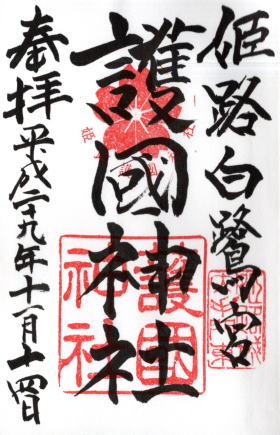 姫路白鷺宮
護國神社
奉拝
平成二十九年十一月十四日
護国
神社